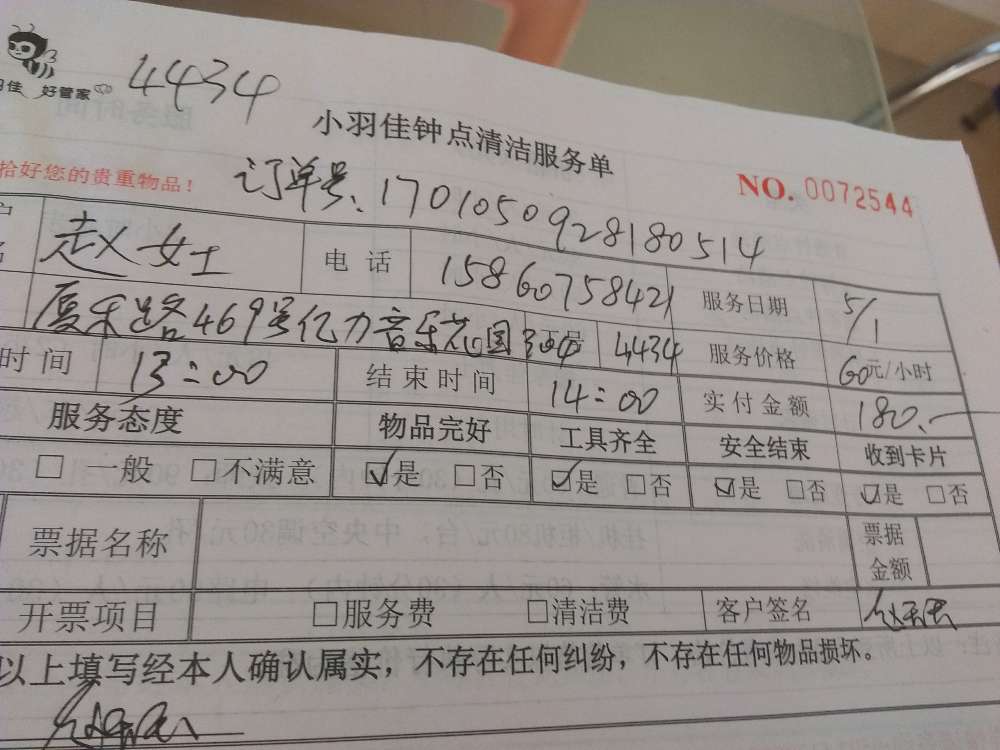 4434
羽佳 好管家
小羽佳钟点清洁服务单
拾好您的贵重物品！
订单号：1701050928180514
NO. 0072544
赵女士 电话 15860758421 服务日期 5/1
厦禾路469号亿力音乐花园 4434 服务价格 60元/小时
时间 13:00 结束时间 14:00 实付金额 180.-
服务态度 物品完好 工具齐全 安全结束 收到卡片
□一般 □不满意 ☑是 □否 ☑是 □否 ☑是 □否 ☑是 □否
票据名称 票据金额
开票项目 □服务费 □清洁费 客户签名
以上填写经本人确认属实，不存在任何纠纷，不存在任何物品损坏。